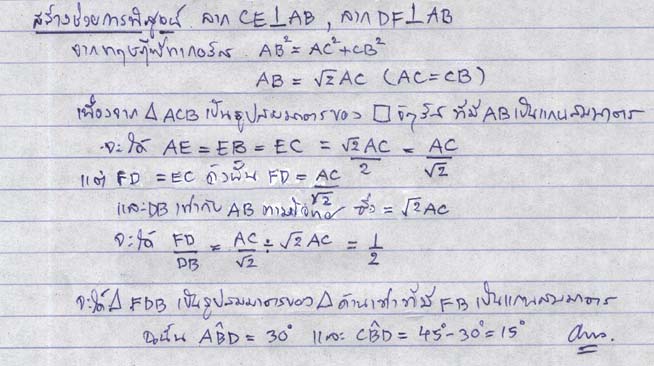 สร้างช่วยการพิสูจน์ ลาก CE⊥AB , ลาก DF⊥AB
จากทฤษฎีพีทาโกรัส AB² = AC²+CB²
AB = √2 AC (AC=CB)
เนื่องจาก △ ACB เป็นรูปสมมาตรของ □ จัตุรัส ที่มี AB เป็นแกนสมมาตร
จะได้ AE = EB = EC = √2 AC/2 = AC/√2
แต่ FD = EC ดังนั้น FD = AC/√2
และ DB เท่ากับ AB ตามโจทย์ ซึ่ง = √2 AC
จะได้ FD/DB = AC/√2 ÷ √2 AC = 1/2
จะได้ △ FDB เป็นรูปสมมาตรของ △ ด้านเท่า ที่มี FB เป็นแกนสมมาตร
ฉะนั้น AB̂D = 30° และ CB̂D = 45°-30° = 15° Ans.